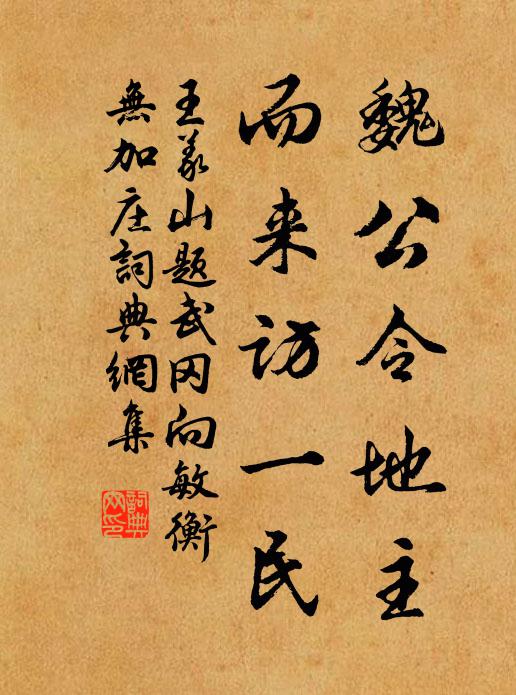 魏公令地主
而来访一民
王义山题武冈向敏衡
無加庄詞典網集
詞典網印